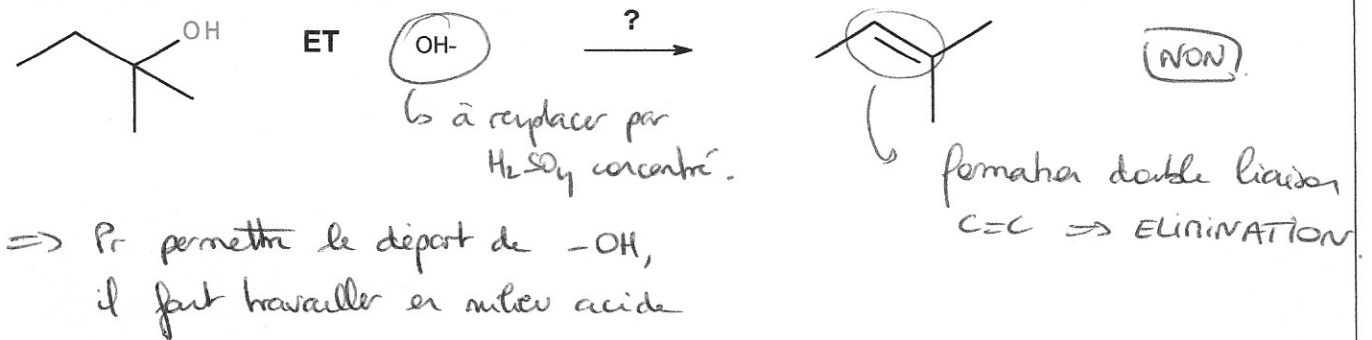 OH
ET
OH-
?
NON
↳ à remplacer par
H2SO4 concentré.
formation double liaison
C=C => ELIMINATION.
=> Pr permettre le départ de -OH,
il faut travailler en milieu acide